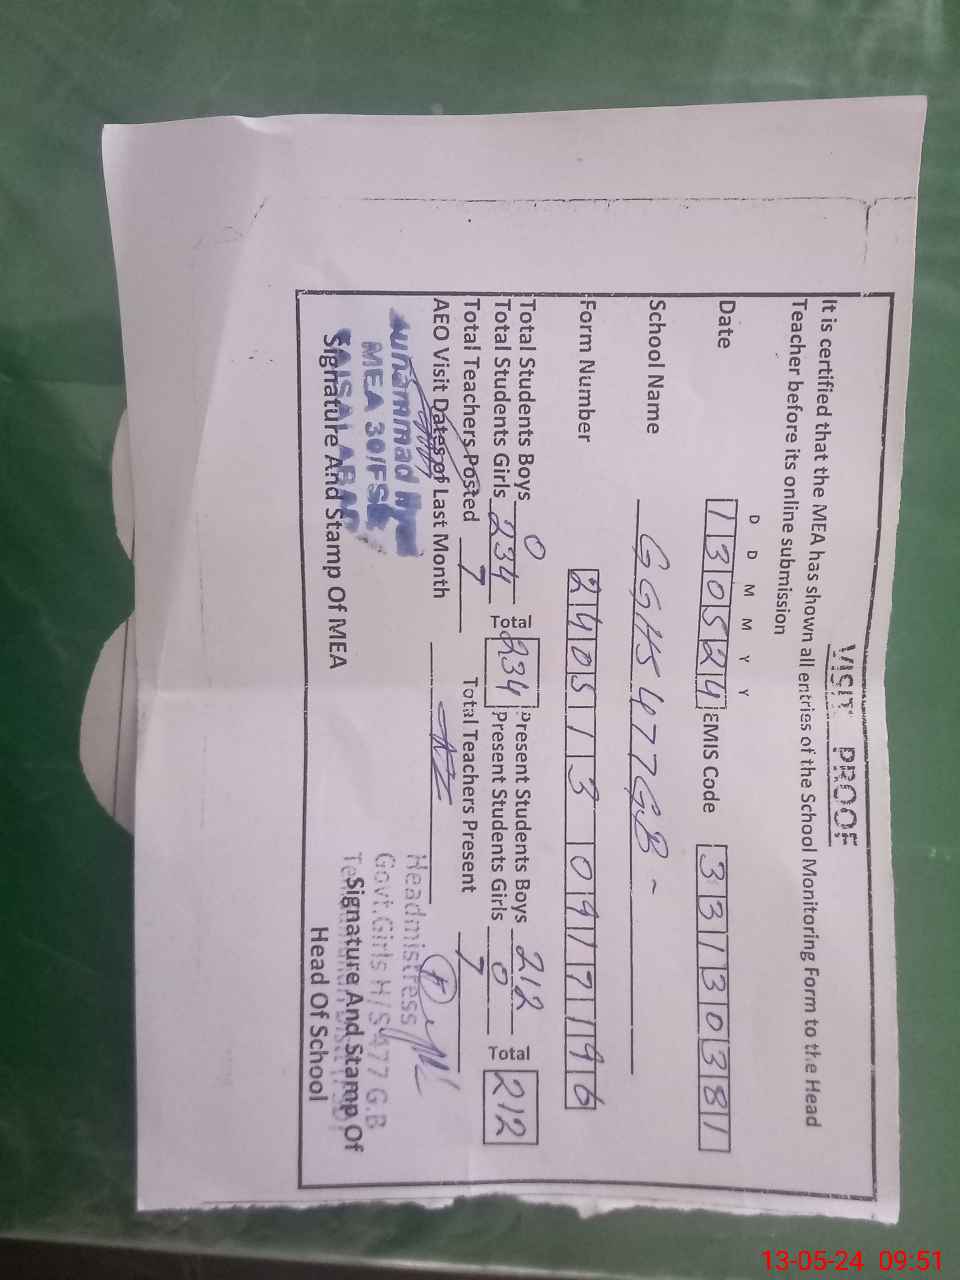 VISIT PROOF
It is certified that the MEA has shown all entries of the School Monitoring Form to the Head
Teacher before its online submission
D D M M Y Y
Date 130524 EMIS Code 33130381
School Name GGHS 477GB -
Form Number 240513 0917196
Total Students Boys 0 Present Students Boys 212
Total Students Girls 234 Total 234 Present Students Girls 0 Total 212
Total Teachers Posted 7 Total Teachers Present 7
AEO Visit Dates of Last Month
Muhammad
MEA 30/FSD
FAISALABAD
Signature And Stamp Of MEA
Headmistress
Govt.Girls H/S 477 G.B
Signature And Stamp Of
Head Of School
13-05-24 09:51